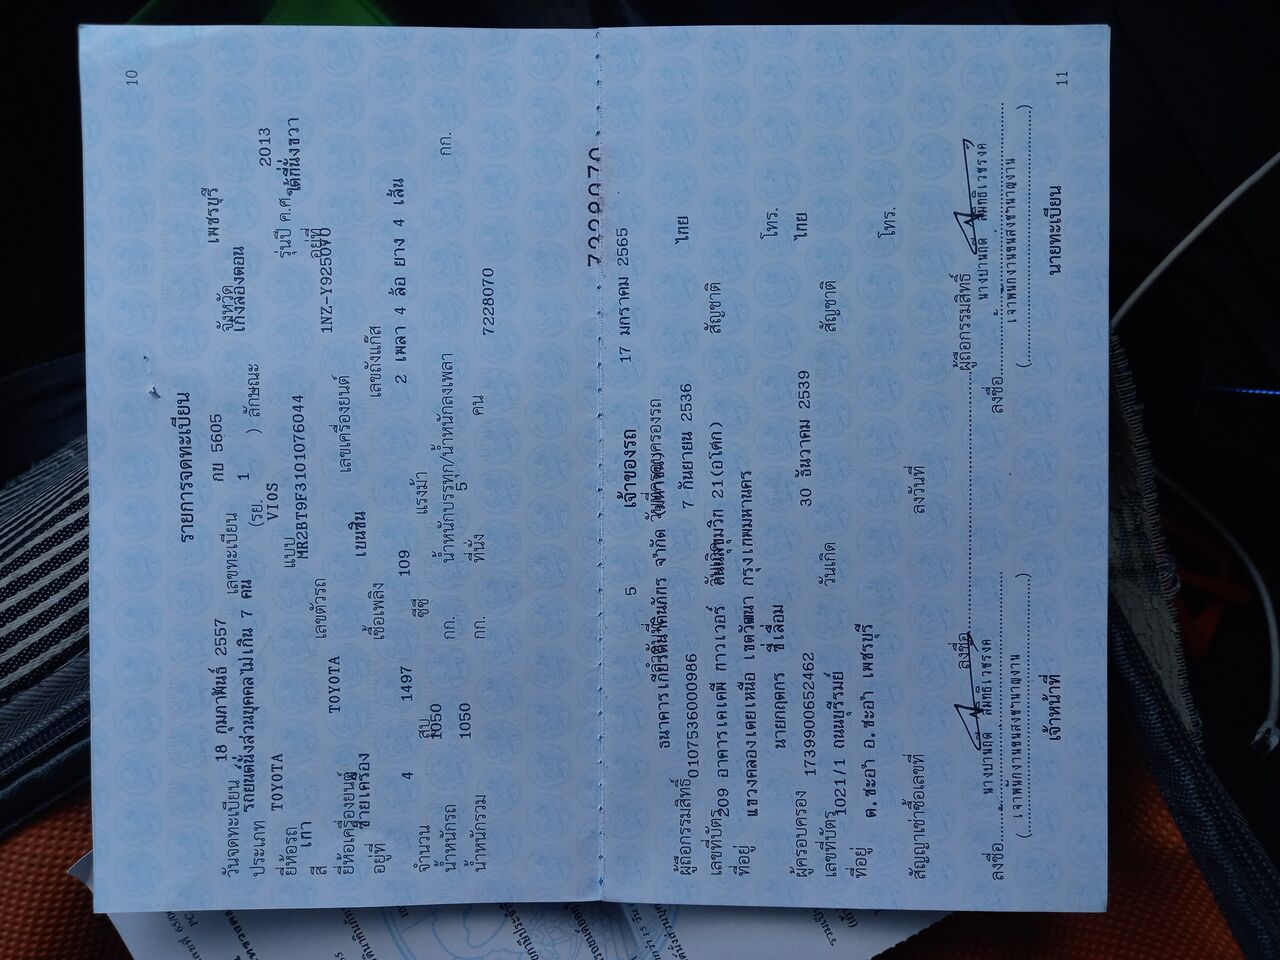 10
รายการจดทะเบียน
วันจดทะเบียน 18 กุมภาพันธ์ 2557 เลขทะเบียน กบ 5605 จังหวัด เพชรบุรี
ประเภท รถยนต์นั่งส่วนบุคคลไม่เกิน 7 คน (รย. 1 ) ลักษณะ เก๋งสองตอน
ยี่ห้อรถ TOYOTA แบบ VIOS รุ่นปี ค.ศ. 2013
สี เทา เลขตัวรถ MR2BT9F3101076044 อยู่ที่ ใต้ที่นั่งขวา
ยี่ห้อเครื่องยนต์ TOYOTA เลขเครื่องยนต์ 1NZ-Y925070
อยู่ที่ ซ้ายเครื่อง เชื้อเพลิง เบนซิน เลขถังแก๊ส
จำนวน 4 สูบ 1497 ซีซี 109 แรงม้า 2 เพลา 4 ล้อ ยาง 4 เส้น
น้ำหนักรถ 1050 กก. น้ำหนักบรรทุก/น้ำหนักลงเพลา กก.
น้ำหนักรวม 1050 กก. ที่นั่ง 5 คน 7228070
7228070
เจ้าของรถ
ลำดับที่ 5 วันที่ครอบครองรถ 17 มกราคม 2565
ผู้ถือกรรมสิทธิ์ ธนาคารเกียรตินาคินภัทร จำกัด (มหาชน)
เลขที่บัตร 0107536000986 วันเกิด 7 กันยายน 2536 สัญชาติ ไทย
ที่อยู่ 209 อาคารเคเคพี ทาวเวอร์ ถนนสุขุมวิท 21(อโศก)
แขวงคลองเตยเหนือ เขตวัฒนา กรุงเทพมหานคร โทร.
ผู้ครอบครอง นายกฤตกร
เลขที่บัตร 1739900652462 วันเกิด 30 ธันวาคม 2539 สัญชาติ ไทย
ที่อยู่ 1021/1
ต.ชะอำ อ.ชะอำ เพชรบุรี โทร.
สัญญาเช่าซื้อเลขที่ ลงวันที่
ลงชื่อ ผู้ถือกรรมสิทธิ์
ลงชื่อ ลงชื่อ
เจ้าหน้าที่ นายทะเบียน
11